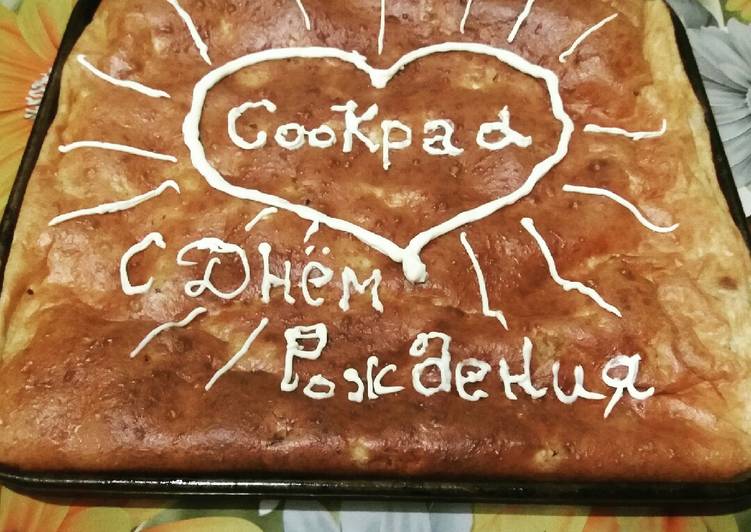 Cookpad
С Днём
Рождения